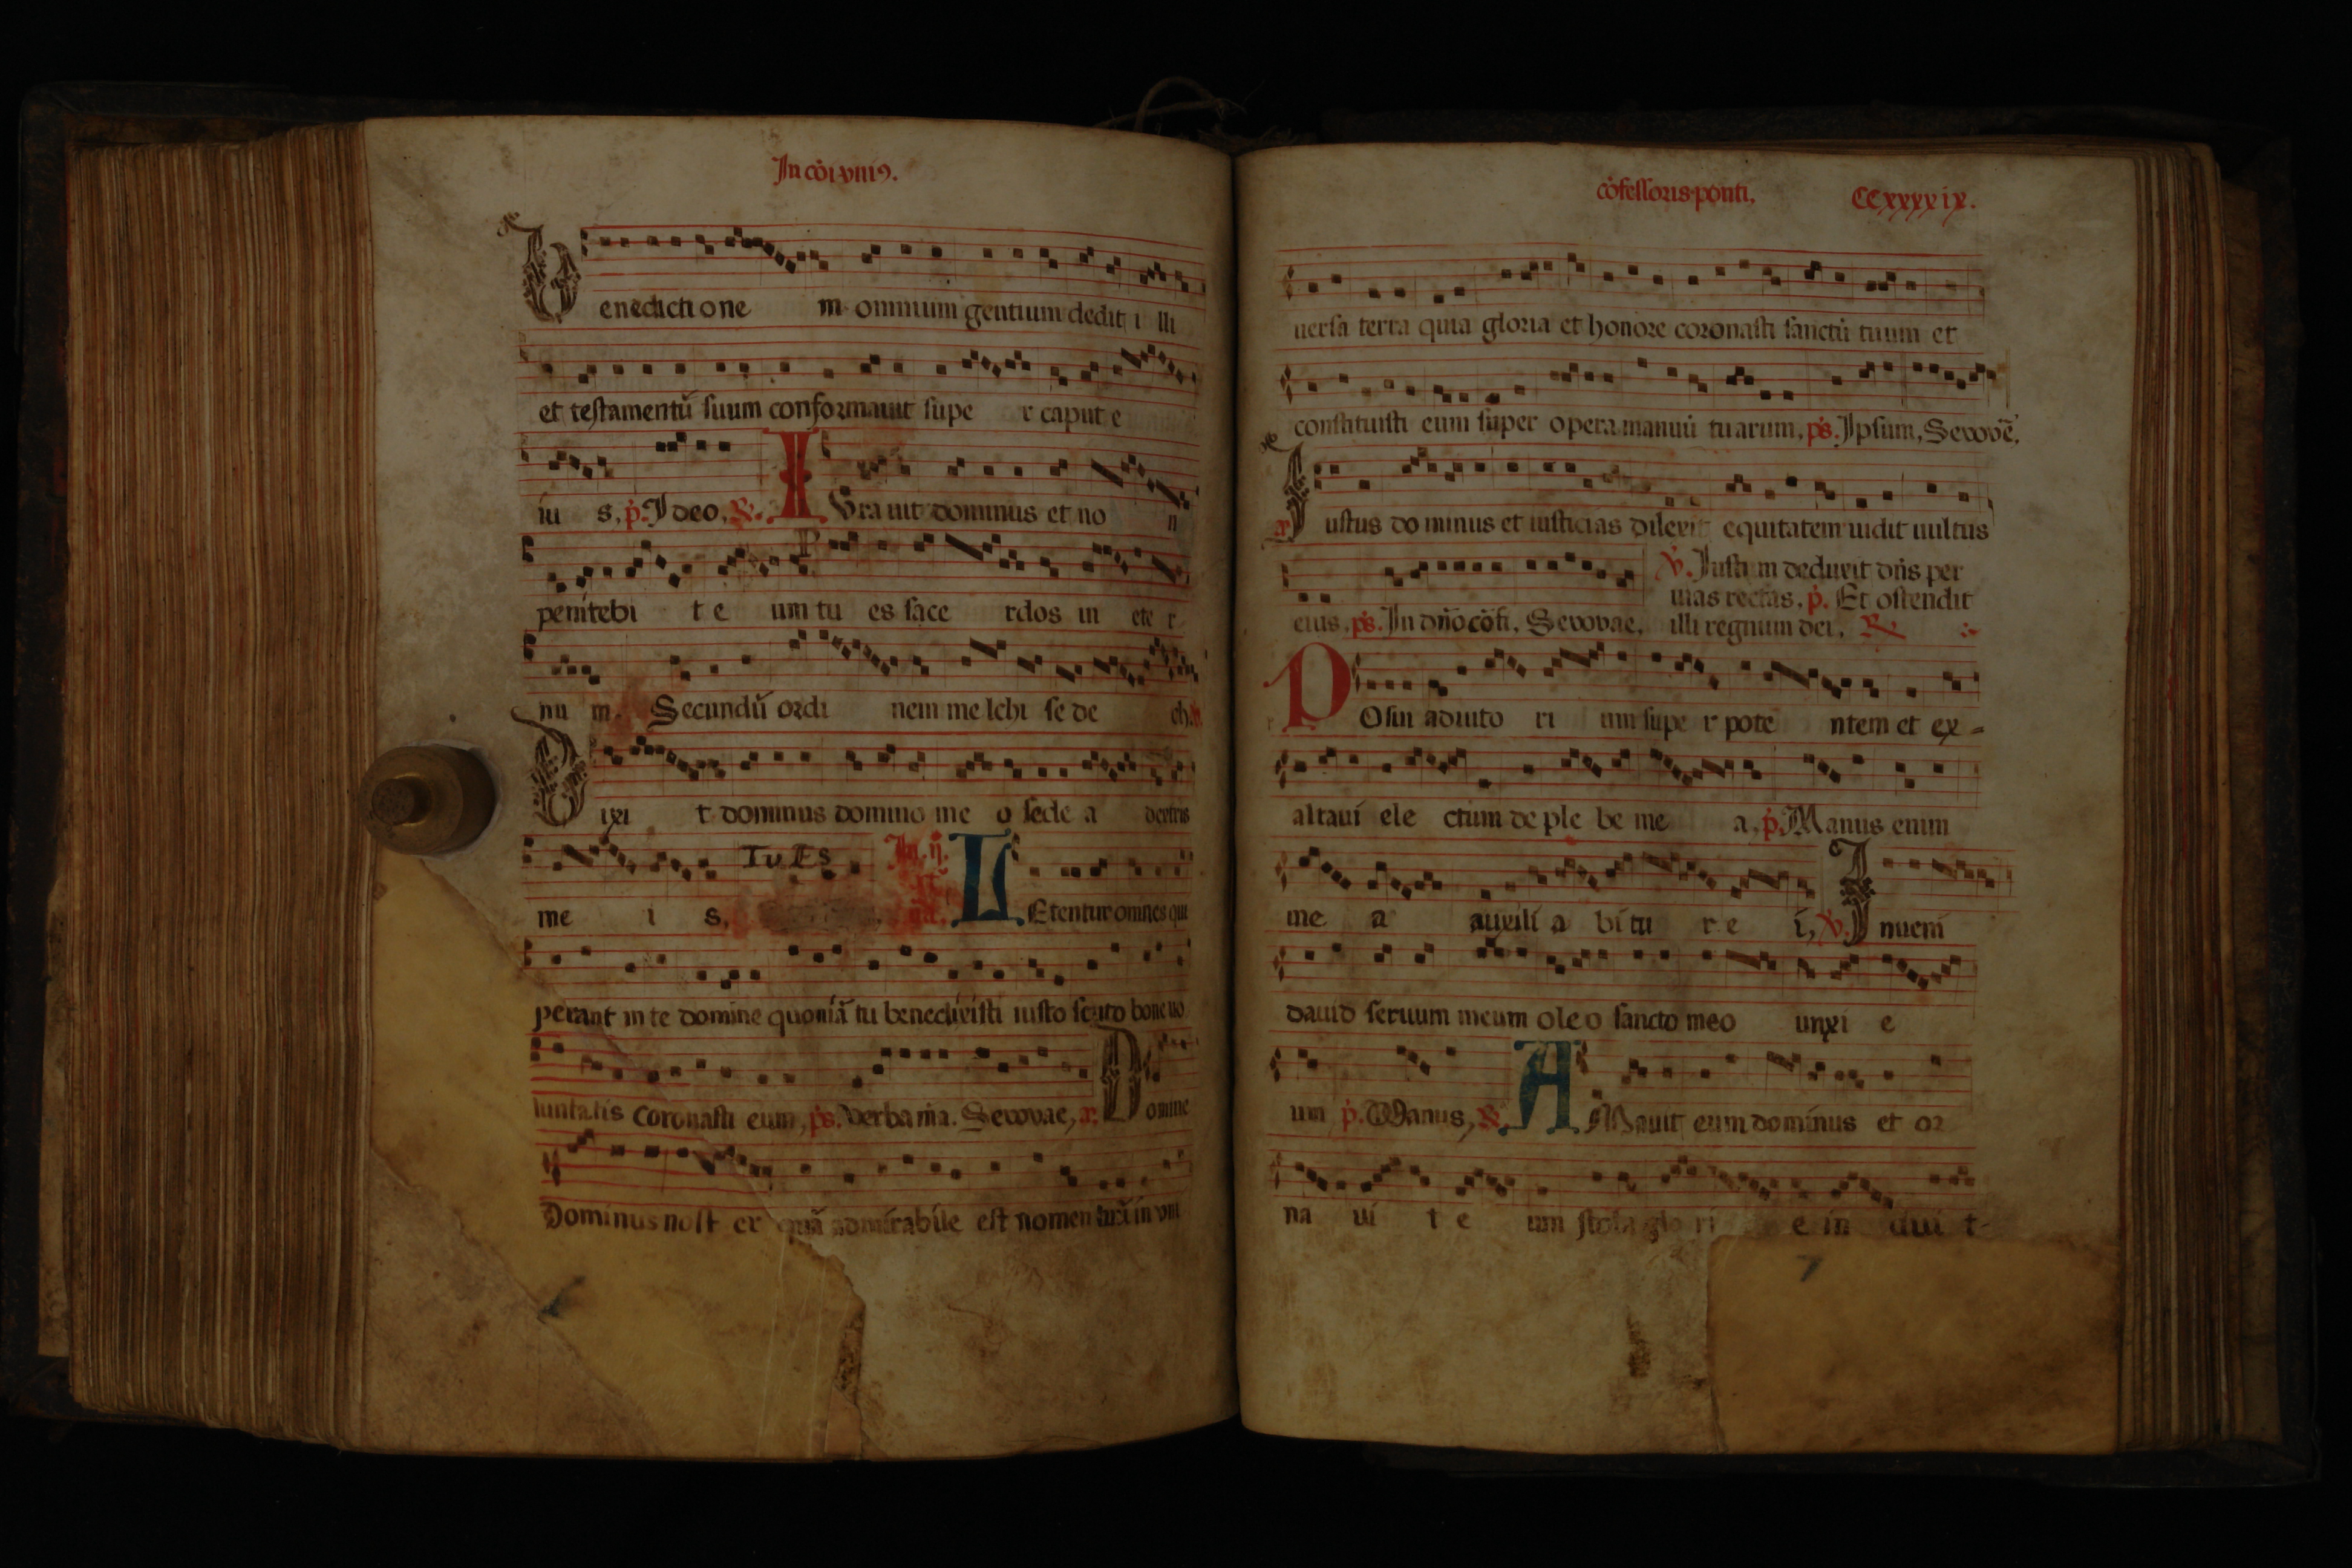 In cōi vniꝰ.
Benedictione m omnium gentium dedit i lli
et testamentū suum conformauit supe r caput e
iu s, p̄. Ideo, ℣. IVrauit dominus et no n
penitebi t e um tu es sace rdos in ete r
nu m. Secundū ordi nem melchi se de ch.
Dixi t dominus domino me o sede a dextris
me i s. Tu Es LEtentur omnes qui
perant in te domine quoniā tu benedixisti iusto scuto bone uo
luntatis coronasti eum, p̄s. Verba m̄a. Sevovae, Domine
Dominus nost er quā admirabile est nomen tuū in vni
cōfessoris ponti, CCxxxxix.
uersa terra quia gloria et honore coronasti sanctū tuum et
constituisti eum super opera manuū tuarum, p̄s. Ipsum, Sevovē.
Iustus dominus et iusticias dilexit equitatem uidit uultus
℣. Iustum deduxit dn̄s per
uias rectas, p̄. Et ostendit
eius, p̄s. In dn̄o cōfi, Sevovae, illi regnum dei, ℟
POsui adiuto ri um supe r pote ntem et ex-
altaui ele ctum de ple be me a, p̄. Manus enim
me a auxili a bitu r e i, ℣. Inueni
dauid seruum meum oleo sancto meo unxi e
um p̄. Manus, ℟. AMauit eum dominus et or
na ui t e um stola glo ri e in dui t-